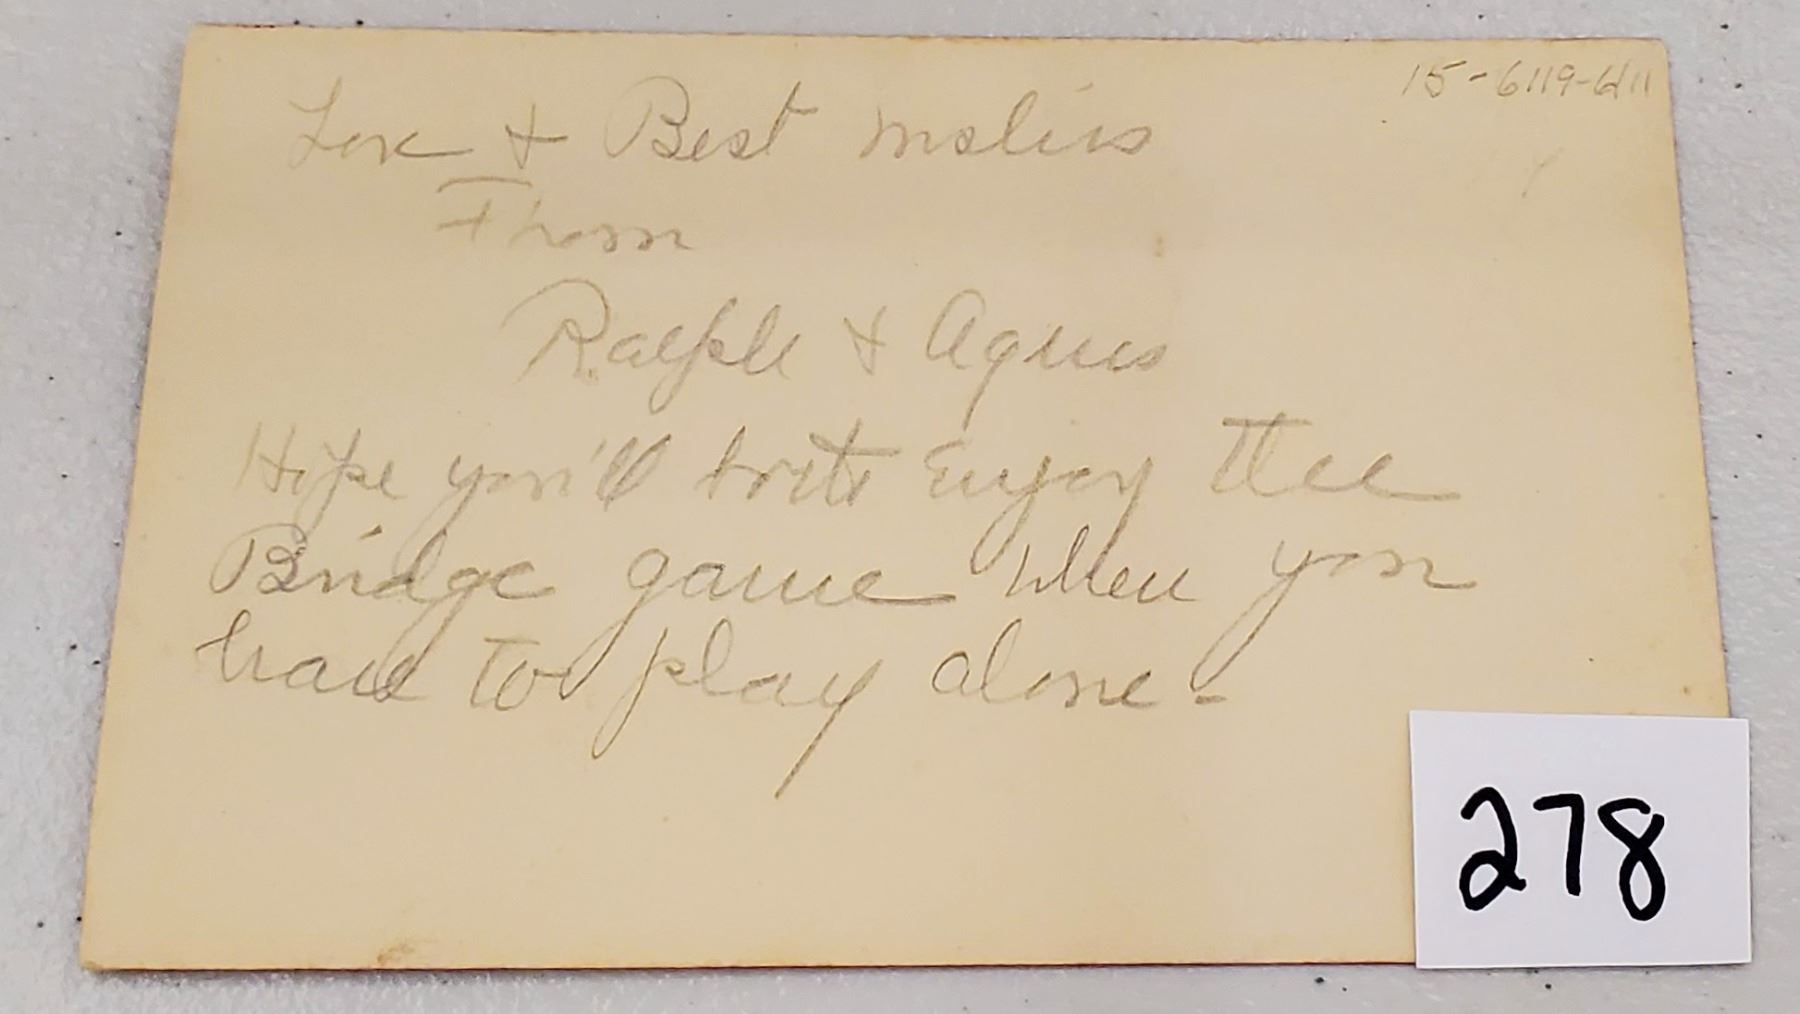 15-6119-611
Love & Best wishes
From
Ralph & Agnes
Hope you'll both Enjoy the
Bridge game when you
have to play alone -
278